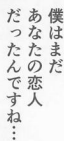 僕はまだ
あなたの恋人
だったんですね…